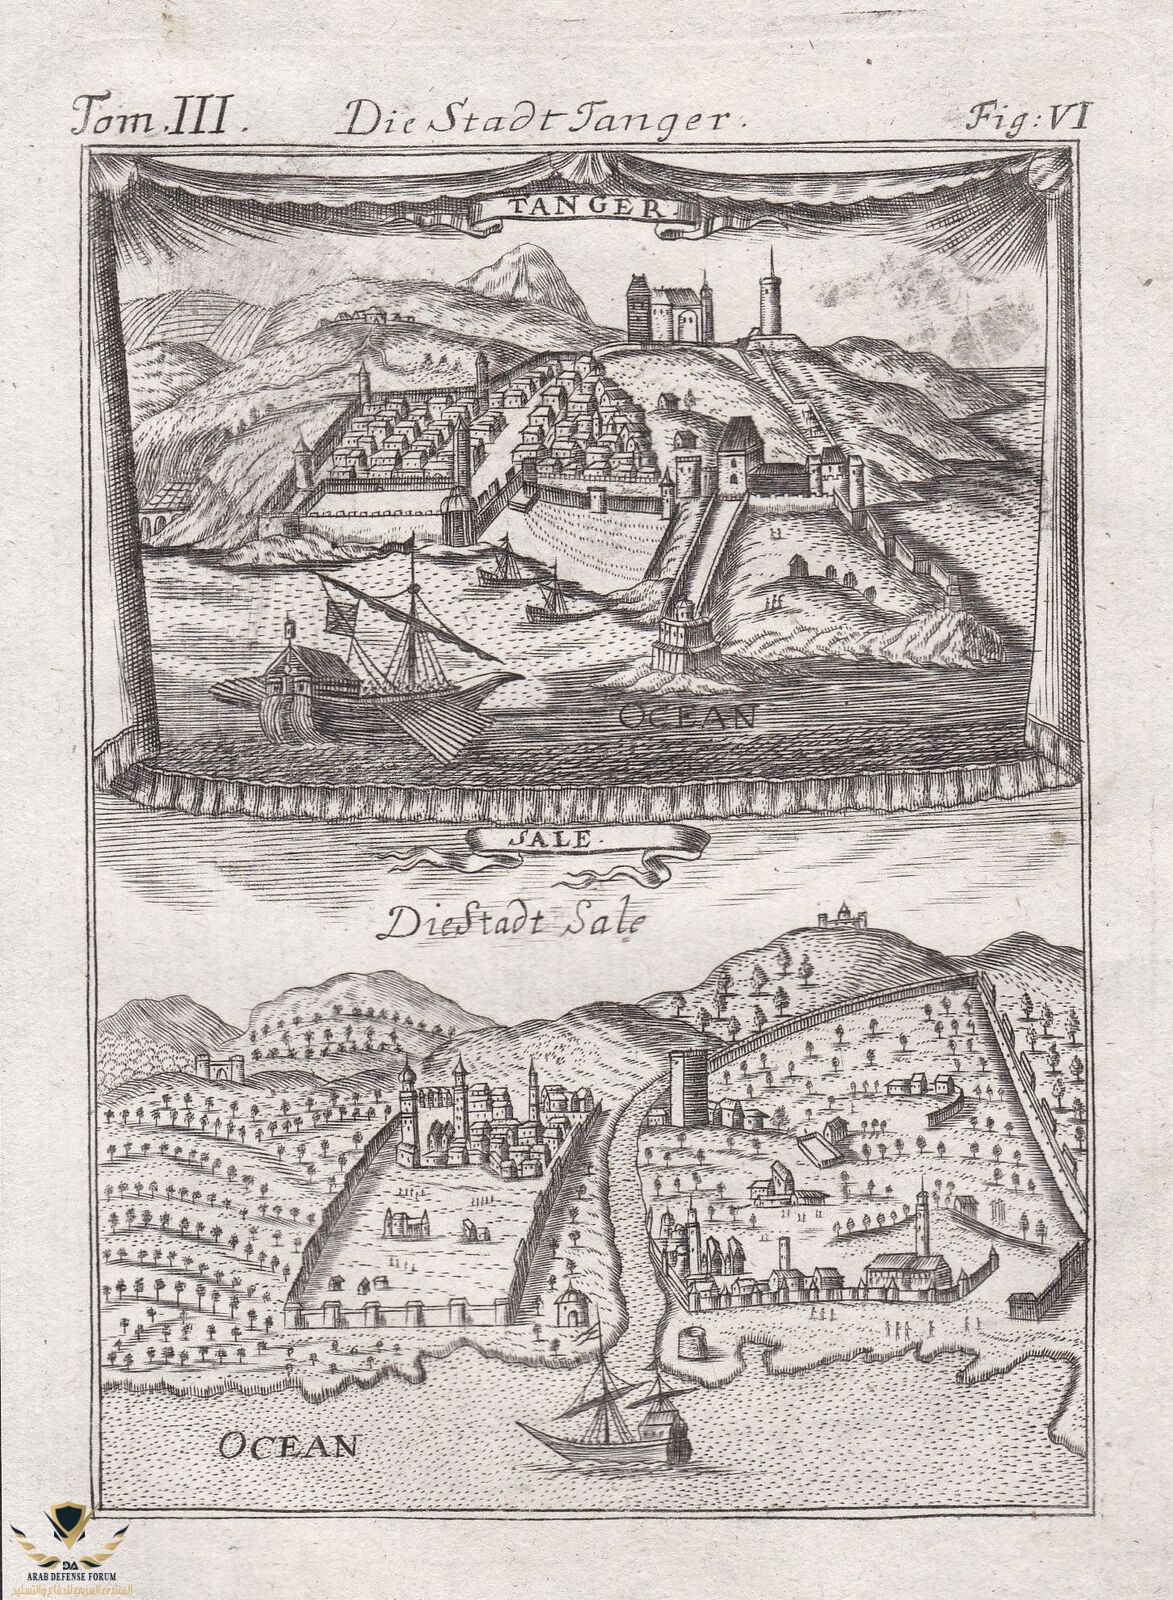 Tom. III. Die Stadt Tanger. Fig: VI
TANGER
OCEAN
SALE.
Die Stadt Sale
OCEAN
DA
ARAB DEFENSE FORUM
المنتدى العربي للدفاع والتسليح